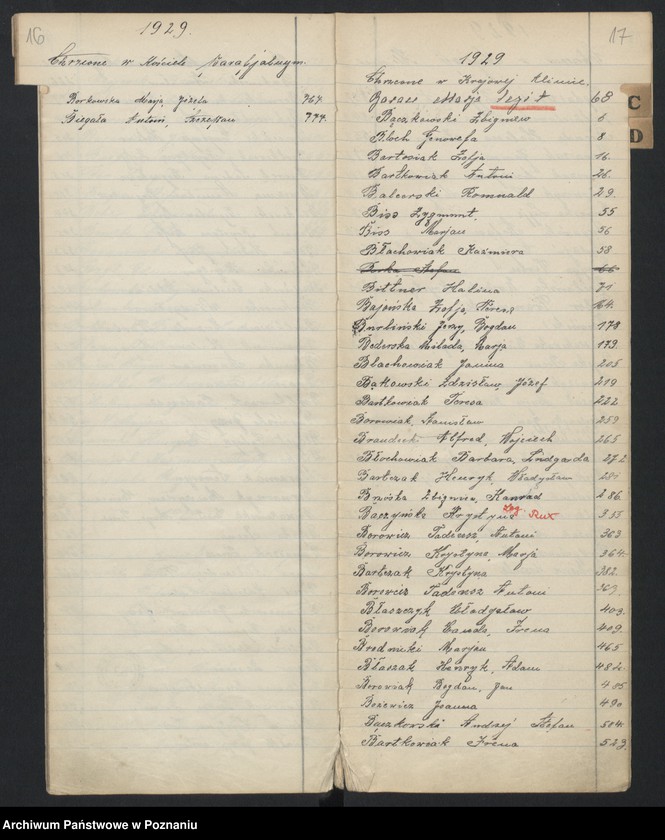 16
1929.
Chrzone w Kościele Parafjalnym.
Borkowska Marja, Józefa 767.
Biegała Antoni, Szczepan 774.
17
1929
Chrzone w Krajowej Klinice.
Marja 68
Bączkowski Zbigniew 5
Bloch Genowefa 8
Bartosiak Zofja 16.
Bartkowiak Antoni 26.
Balcerski Romuald 29.
Biss Zygmunt, 55
Biss Marjan 56
Błachowiak Kazimiera 58
Stefan 66
Bittner Halina 71
Bajońska Zofja, Teresa 164.
Burliński Jerzy, Bogdan 178
Bederska Milada, Marja 179.
Blachowiak Janina 205
Bąkowski Zdzisław, Józef 219
Bartkowiak Teresa 222
Borowiak, Stanisław 259
Alfred, Wojciech 265
Błochowiak Barbara, Lindgarda 272
Bartczak Henryk, Władysław
Brzóska Zbigniew, Konrad 286
Baczyńska Krystyna 353
Borowicz Tadeusz, Antoni 363
Borowicz Krystyna, Marja 364.
Bartczak Krystyna 382.
Borowicz Tadeusz Antoni 367.
Błaszczyk Władysław 403.
Borowiak Wanda, Irena 409.
Brodnicki Marjan 465
Błaszak Henryk, Adam 482.
Borowiak Bogdan, Jan 485
Bożewicz Joanna 490
Bączkowski Andrzej Stefan 504.
Bartkowiak Irena 523
C
D
Archiwum Państwowe w Poznaniu